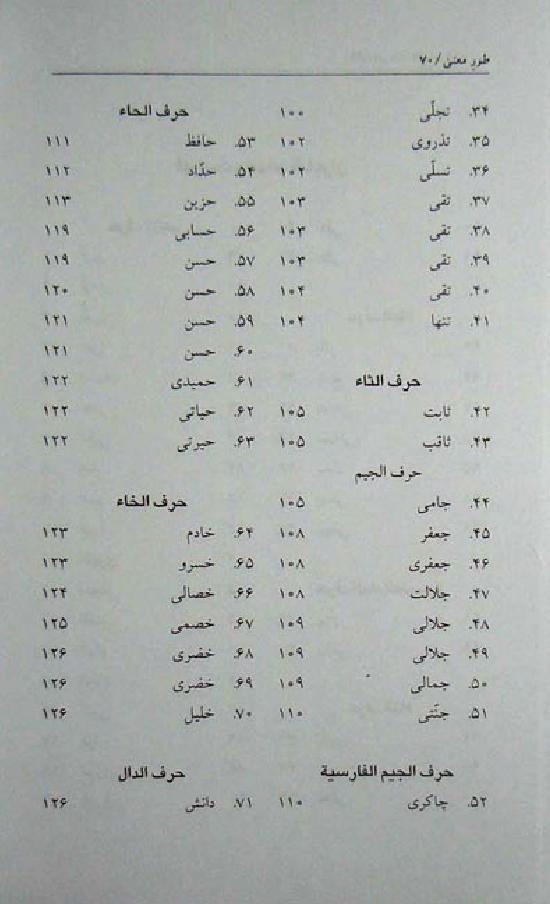 طور معنی / ۷۰
۳۴. تجلّی ۱۰۰
۳۵. تذروی ۱۰۲
۳۶. تسلّی ۱۰۲
۳۷. تقی ۱۰۳
۳۸. تقی ۱۰۳
۳۹. تقی ۱۰۳
۴۰. تقی ۱۰۴
۴۱. تنها ۱۰۴
حرف الثاء
۴۲. ثابت ۱۰۵
۴۳. ثاقب ۱۰۵
حرف الجیم
۴۴. جامی ۱۰۵
۴۵. جعفر ۱۰۸
۴۶. جعفری ۱۰۸
۴۷. جلالت ۱۰۸
۴۸. جلالی ۱۰۹
۴۹. جلالی ۱۰۹
۵۰. جمالی ۱۰۹
۵۱. جنّتی ۱۱۰
حرف الجیم الفارسیة
۵۲. چاکری ۱۱۰
حرف الحاء
۵۳. حافظ ۱۱۱
۵۴. حدّاد ۱۱۲
۵۵. حزین ۱۱۳
۵۶. حسابی ۱۱۹
۵۷. حسن ۱۱۹
۵۸. حسن ۱۲۰
۵۹. حسن ۱۲۱
۶۰. حسن ۱۲۱
۶۱. حمیدی ۱۲۲
۶۲. حیاتی ۱۲۲
۶۳. حیرتی ۱۲۲
حرف الخاء
۶۴. خادم ۱۲۳
۶۵. خسرو ۱۲۳
۶۶. خصالی ۱۲۴
۶۷. خصمی ۱۲۵
۶۸. خضری ۱۲۶
۶۹. خضری ۱۲۶
۷۰. خلیل ۱۲۶
حرف الدال
۷۱. دانش ۱۲۶